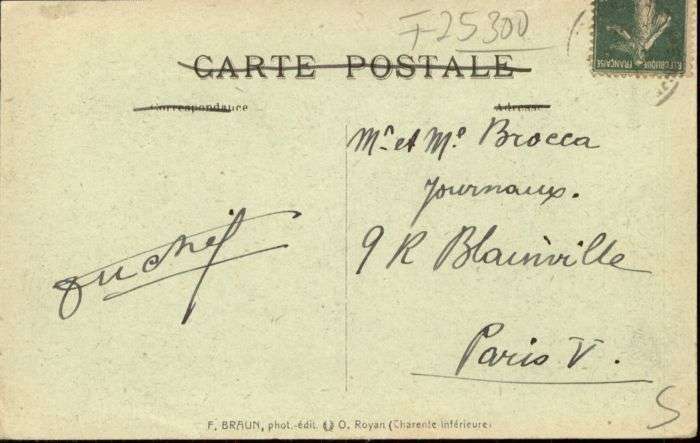 F25300
RÉPUBLIQUE FRANÇAISE
CARTE POSTALE
Correspondance
Adresse
Mr et Me Brocca
Journaux.
9 R Blainville
Paris V.
F. BRAUN, phot.-édit. O. Royan (Charente-Inférieure)
S